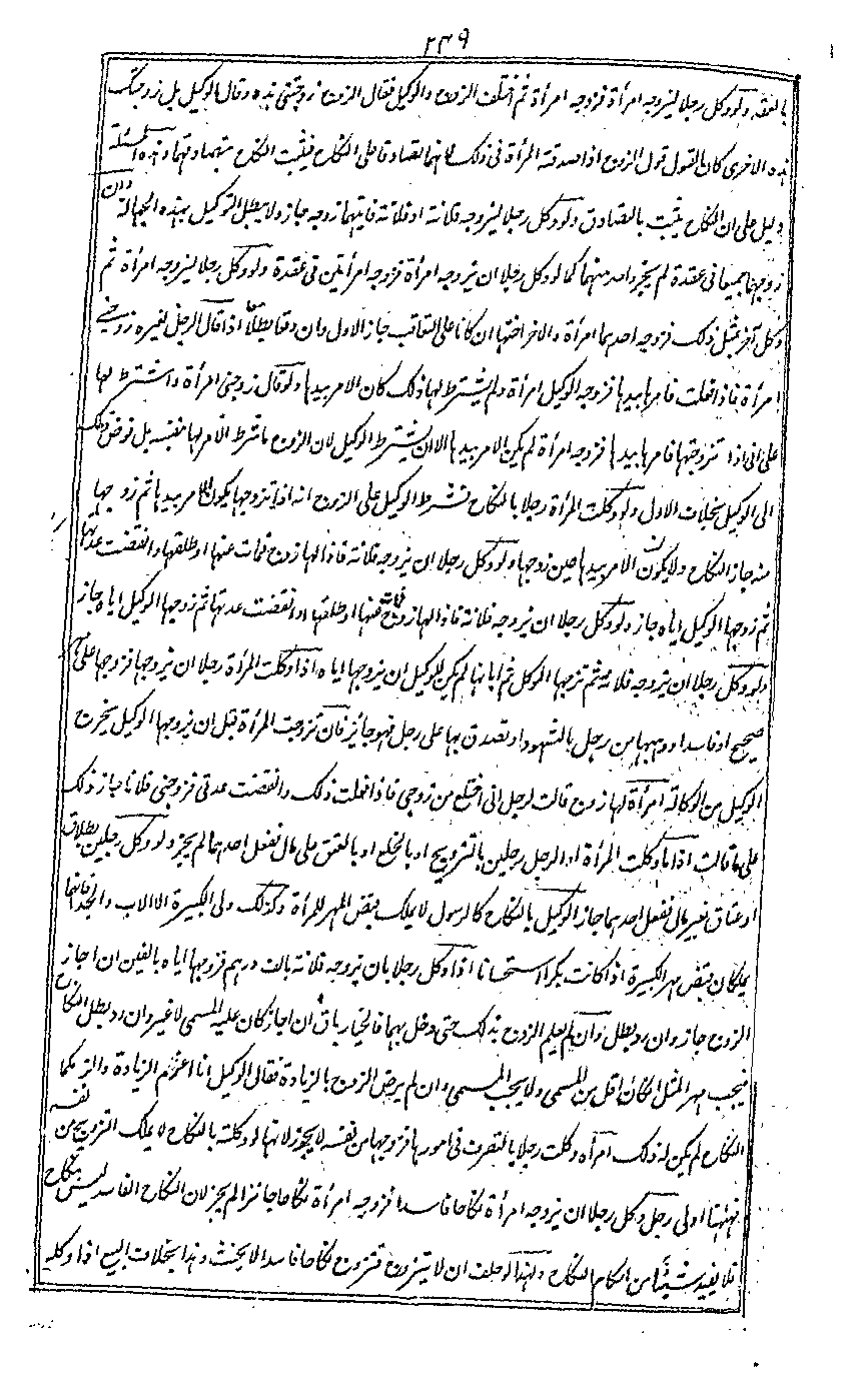 ۲۳۹
بالعقد ولو وكل رجلا ليزوجه امرأة فزوجه امرأة ثم اختلف الزوج والوكيل فقال الزوج زوجتنى هذه وقال الوكيل بل زوجتك
هذه الاخرى كان القول قول الزوج اذا صدقته المرأة فى ذلك لانهما تصادقا على النكاح فيثبت النكاح بتصادقهما وهذه المسئلة
دليل على ان النكاح يثبت بالتصادق ولو وكل رجلا ليزوجه فلانة او فلانة فايتهما زوجه جاز ولا يبطل التوكيل بهذه الجهالة وان
زوجهما جميعا فى عقدة لم يجز واحد منهما كما لو وكل رجلا ان يزوجه امرأة فزوجه امرأتين فى عقدة ولو وكل رجلا ليزوجه امرأة ثم
وكل آخر بمثل ذلك فزوجه احدهما امرأة والآخر اختها ان كانا على التعاقب جاز الاول وان وقعا معا بطلا اذا قال الرجل لغيره زوجنى
امرأة فاذا فعلت فامرها بيدها فزوجه الوكيل امرأة ولم يشترط لها ذلك كان الامر بيدها ولو قال زوجنى امرأة واشترط لها
على انى اذا تزوجتها فامرها بيدها فزوجه امرأة لم يكن الامر بيدها الا ان يشترط الوكيل لان الزوج ما شرط الامر لها بنفسه بل فوض ذلك
الى الوكيل بخلاف الاول ولو وكلت المرأة رجلا بالنكاح فشرط الوكيل على الزوج انه اذا تزوجها يكون الامر بيدها ثم زوجها
منه جاز النكاح ولا يكون الامر بيدها حين زوجها ولو وكل رجلا ان يزوجه فلانة فاذا لها زوج فمات عنها او طلقها وانقضت عدتها
ثم زوجها الوكيل اياه جاز ولو وكل رجلا ان يزوجه فلانة فاذا لها زوج فمات عنها او طلقها وانقضت عدتها ثم زوجها الوكيل اياه جاز
ولو وكل رجلا ان يزوجه فلانة ثم تزوجها الموكل ثم ابانها لم يكن للوكيل ان يزوجها اياه اذا وكلت المرأة رجلا ان يزوجها فزوجها على مهر
صحيح او فاسد او وهبها من رجل بالشهود او تصدق بها على رجل فهو جائز فان تزوجت المرأة قبل ان يزوجها الوكيل يخرج
الوكيل من الوكالة امرأة لها زوج قالت لرجل انى اختلع من زوجى فاذا فعلت ذلك وانقضت عدتى فزوجنى فلانا جاز ذلك
على ما قالت اذا ما وكلت المرأة او الرجل رجلين بالتزويج او بالخلع او بالعتق على مال ففعل احدهما لم يجز ولو وكل رجلين بطلاق
او عتاق بغير مال ففعل احدهما جاز الوكيل بالنكاح كالرسول لا يملك قبض المهر للمرأة وكذلك ولى الكبيرة الا الاب والجد فانهما
يملكان قبض مهر الكبيرة اذا كانت بكرا استحسانا اذا وكل رجلا بان يزوجه فلانة بالف درهم فزوجها اياه بالفين ان اجاز
الزوج جاز وان رد بطل وان لم يعلم الزوج بذلك حتى دخل بها فالخيار باق ان اجاز كان عليه المسمى لا غير وان رد بطل النكاح
فيجب مهر المثل ان كان اقل من المسمى ولا يجب المسمى وان لم يرض الزوج بالزيادة فقال الوكيل انا اغرم الزيادة والزمكما
النكاح لم يكن له ذلك امرأة وكلت رجلا بالتصرف فى امورها فزوجها من نفسه لا يجوز لانها لو وكلته بالنكاح لا يملك التزويج من نفسه
فههنا اولى رجل وكل رجلا ان يزوجه امرأة نكاحا فاسدا فزوجه امرأة نكاحا جائزا لم يجز لان النكاح الفاسد ليس بنكاح
فلا يفيد شيئا من احكام النكاح ولهذا لو حلف ان لا يتزوج فتزوج نكاحا فاسدا لا يحنث وهذا بخلاف البيع اذا وكله